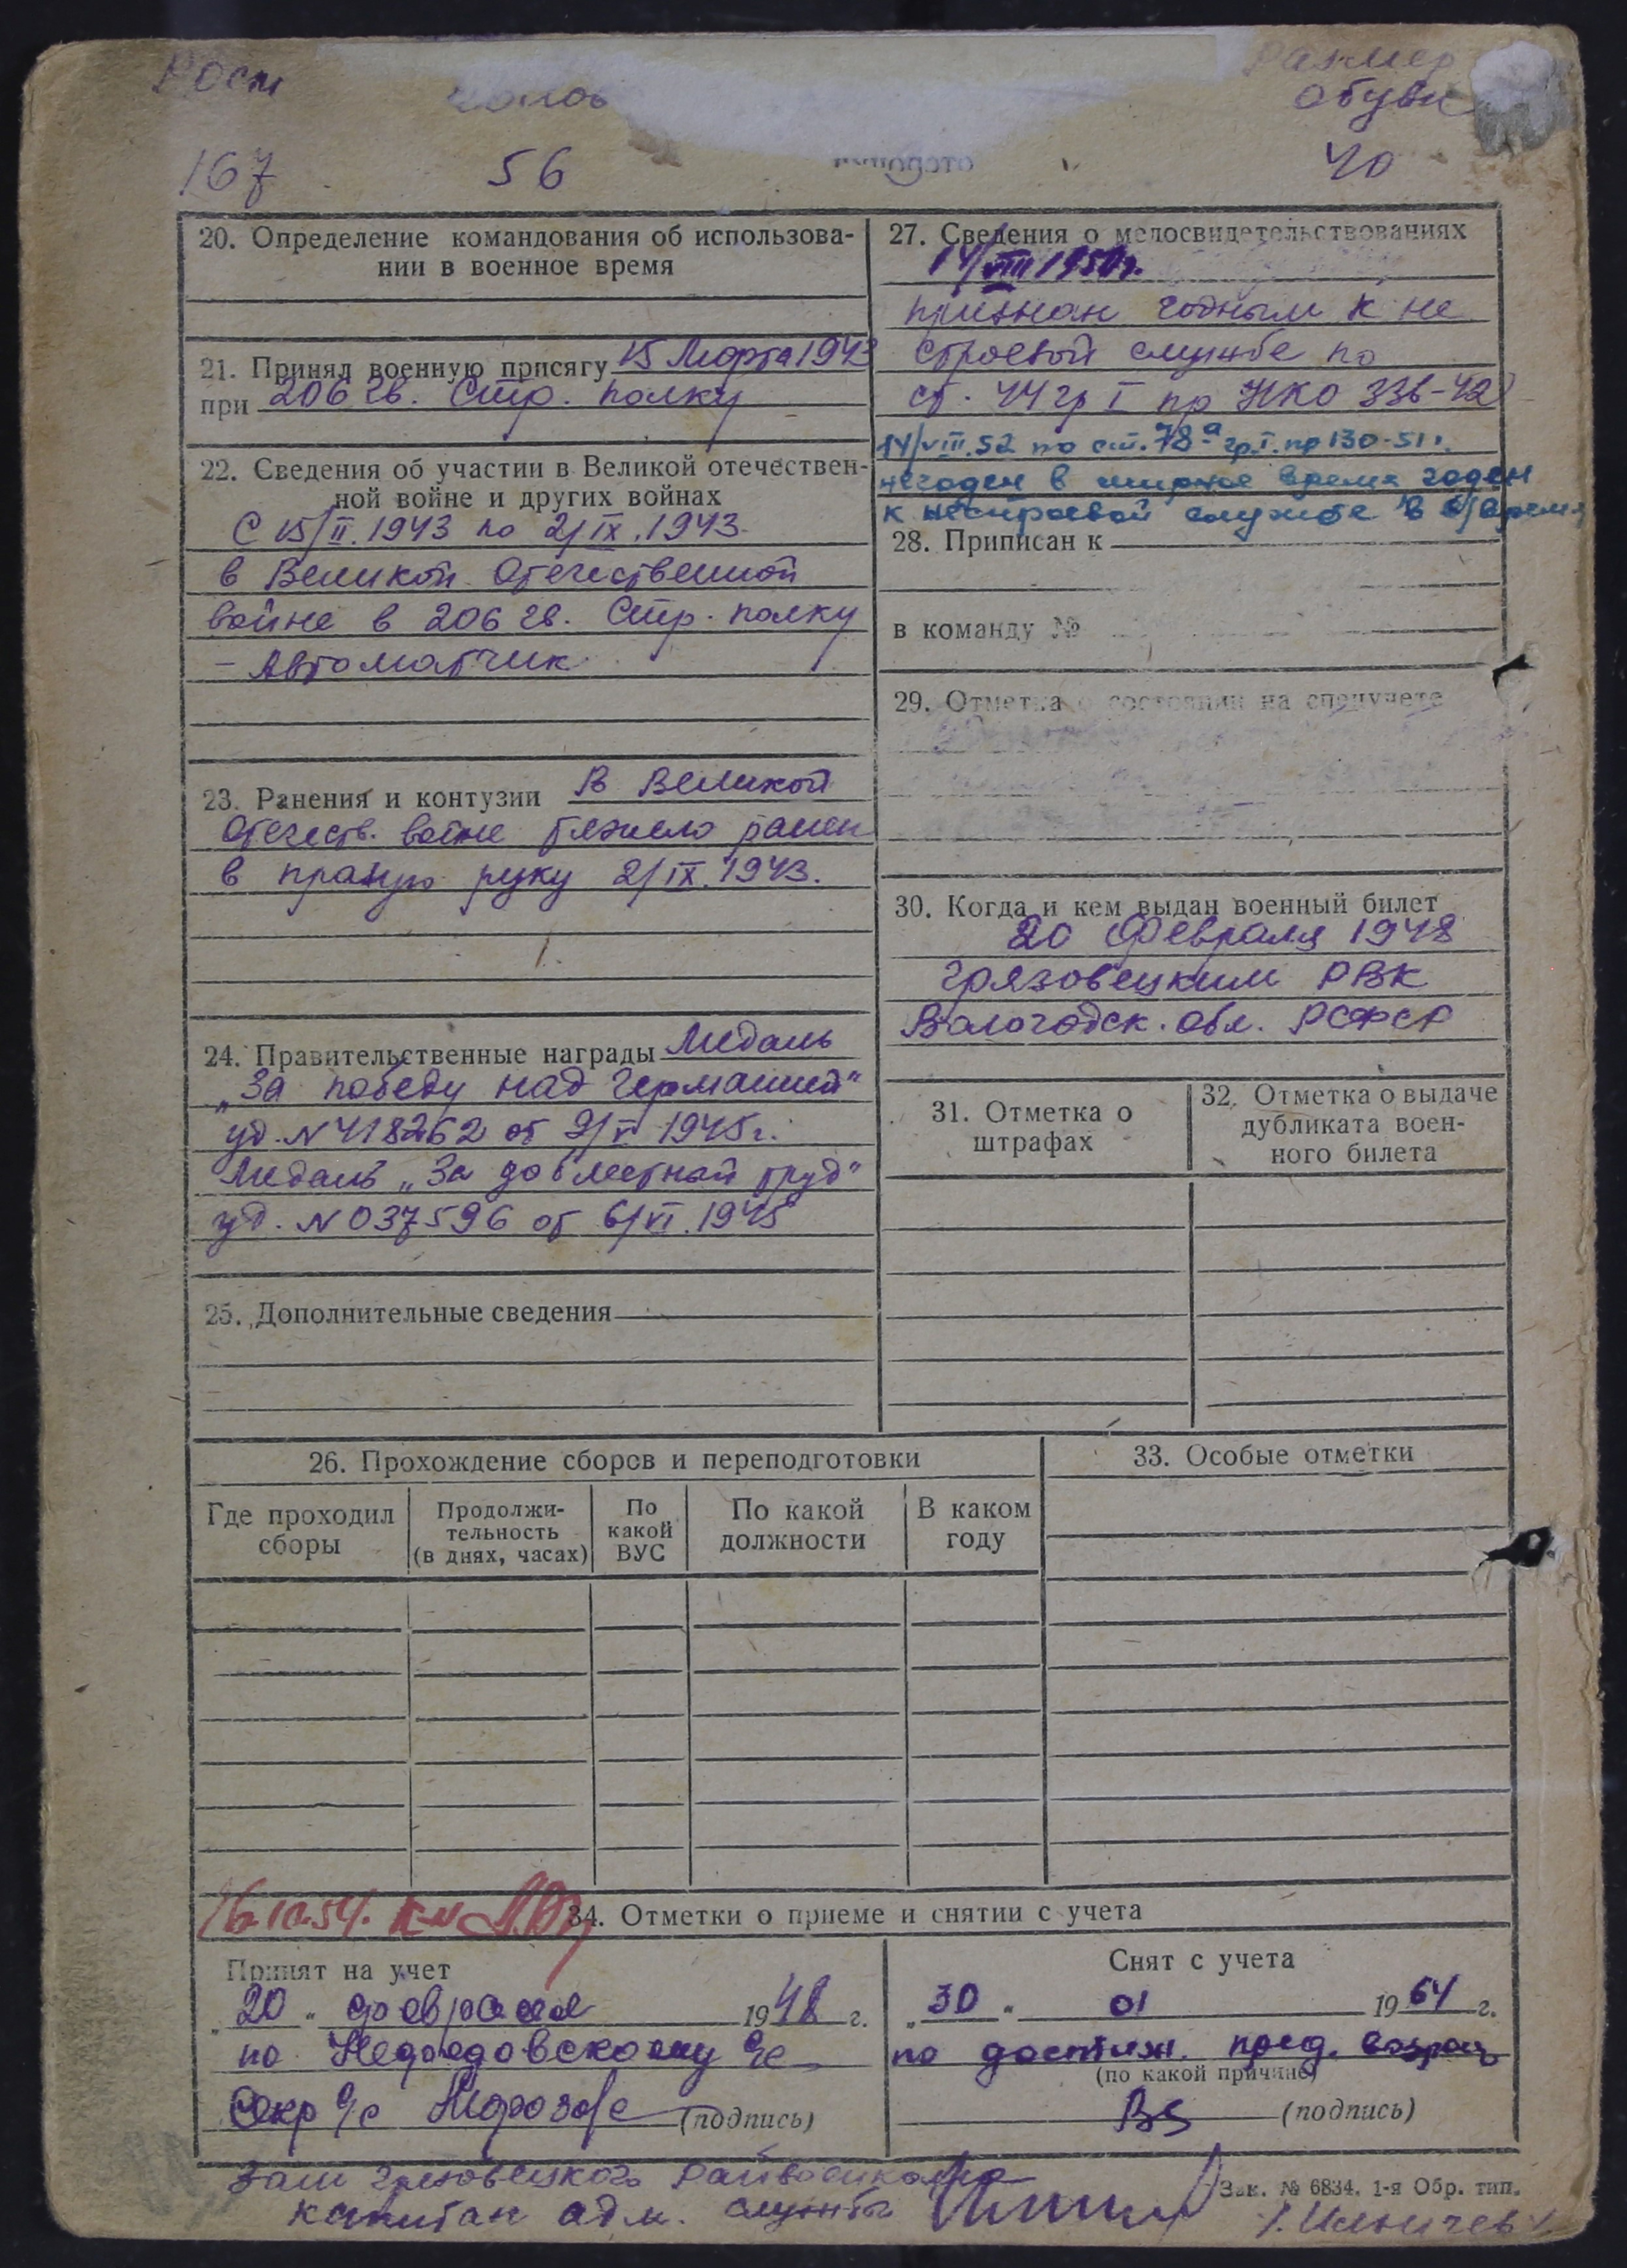 Рост
Размер
обуви
167 56 40
20. Определение командования об использова-
нии в военное время
21. Принял военную присягу 15 Марта 1943
при 206 гв. Стр. полку
22. Сведения об участии в Великой отечествен-
ной войне и других войнах
С 15/II.1943 по 2/IX.1943
в Великой Отечественной
войне в 206 гв. Стр. полку
- Автоматчик
23. Ранения и контузии В Великой
Отечеств. войне тяжело ранен
в правую руку 2/IX.1943.
24. Правительственные награды Медаль
„За победу над Германией"
уд. N 418262 от 9/V 1945г.
Медаль „За доблестный труд"
уд. N 037596 от 6/VI.1945
25. Дополнительные сведения
27. Сведения о медосвидетельствованиях
14/VIII 1950г.
признан годным к не
строевой службе по
ст. 44 гр I пр НКО 336-42
14/VIII.52 по ст. 78а гр.I. пр 130-51г.
негоден в мирное время годен
к нестроевой службе в в/время
28. Приписан к
в команду №
29. Отметка о состоянии на спецучете
30. Когда и кем выдан военный билет
20 Февраля 1948
Грязовецким РВК
Вологодск. обл. РСФСР
31. Отметка о
штрафах
32. Отметка о выдаче
дубликата воен-
ного билета
26. Прохождение сборов и переподготовки
Где проходил
сборы
Продолжи-
тельность
(в днях, часах)
По
какой
ВУС
По какой
должности
В каком
году
33. Особые отметки
34. Отметки о приеме и снятии с учета
Принят на учет
„20" февраля 1948 г.
по
Секр с/с (подпись)
Снят с учета
„30" 01 1964 г.
по достиж. пред. возраст
(по какой причине)
(подпись)
Зам Грязовецкого Райвоенкома
капитан адм. службы
Зак. № 6834. 1-я Обр. тип.